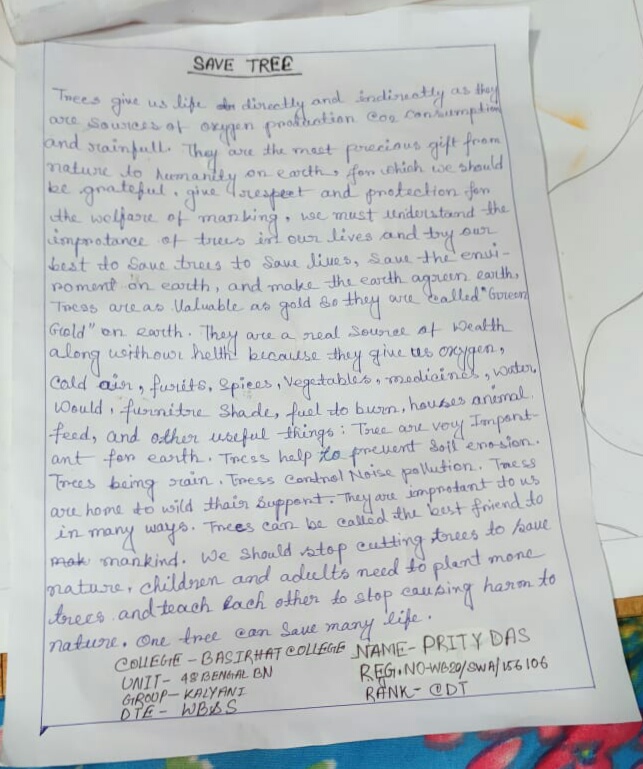 SAVE TREE
Trees give us life directly and indirectly as they
are sources of oxygen production CO2 Consumption
and rainfull. They are the most precious gift from
nature to humanity on earth, for which we should
be grateful, give respect and protection for
the welfare of manking, we must understand the
impnotance of trees in our lives and try our
best to save trees to save lives, save the envi-
roment on earth, and make the earth agreen earth,
Trees are as Valuable as gold so they are called "Goreen
Gold" on earth. They are a real source of wealth
along withour helth because they give us oxygen,
Cold air, furits, Spices, Vegetables, medicines, water,
Would, furnitre Shade, fuel to burn, houses animal
feed, and other useful things: Tree are voy Import-
ant for earth. Trees help to prevent Soil erosion.
Trees being rain. Tress Control Noise pollution. Trees
are home to wild thair Support. They are impnotant to us
in many ways. Trees can be called the best friend to
mankind. We should stop cutting trees to save
nature, children and adults need to plant more
trees and teach Each other to stop causing harm to
nature. One tree can save many life.
COLLEGE - BASIRHAT COLLEGE NAME- PRITY DAS
UNIT- 48 BENGAL BN REG.NO-WB20/SWA/156106
GROUP- KALYANI RANK- CDT
DTE- WB&S